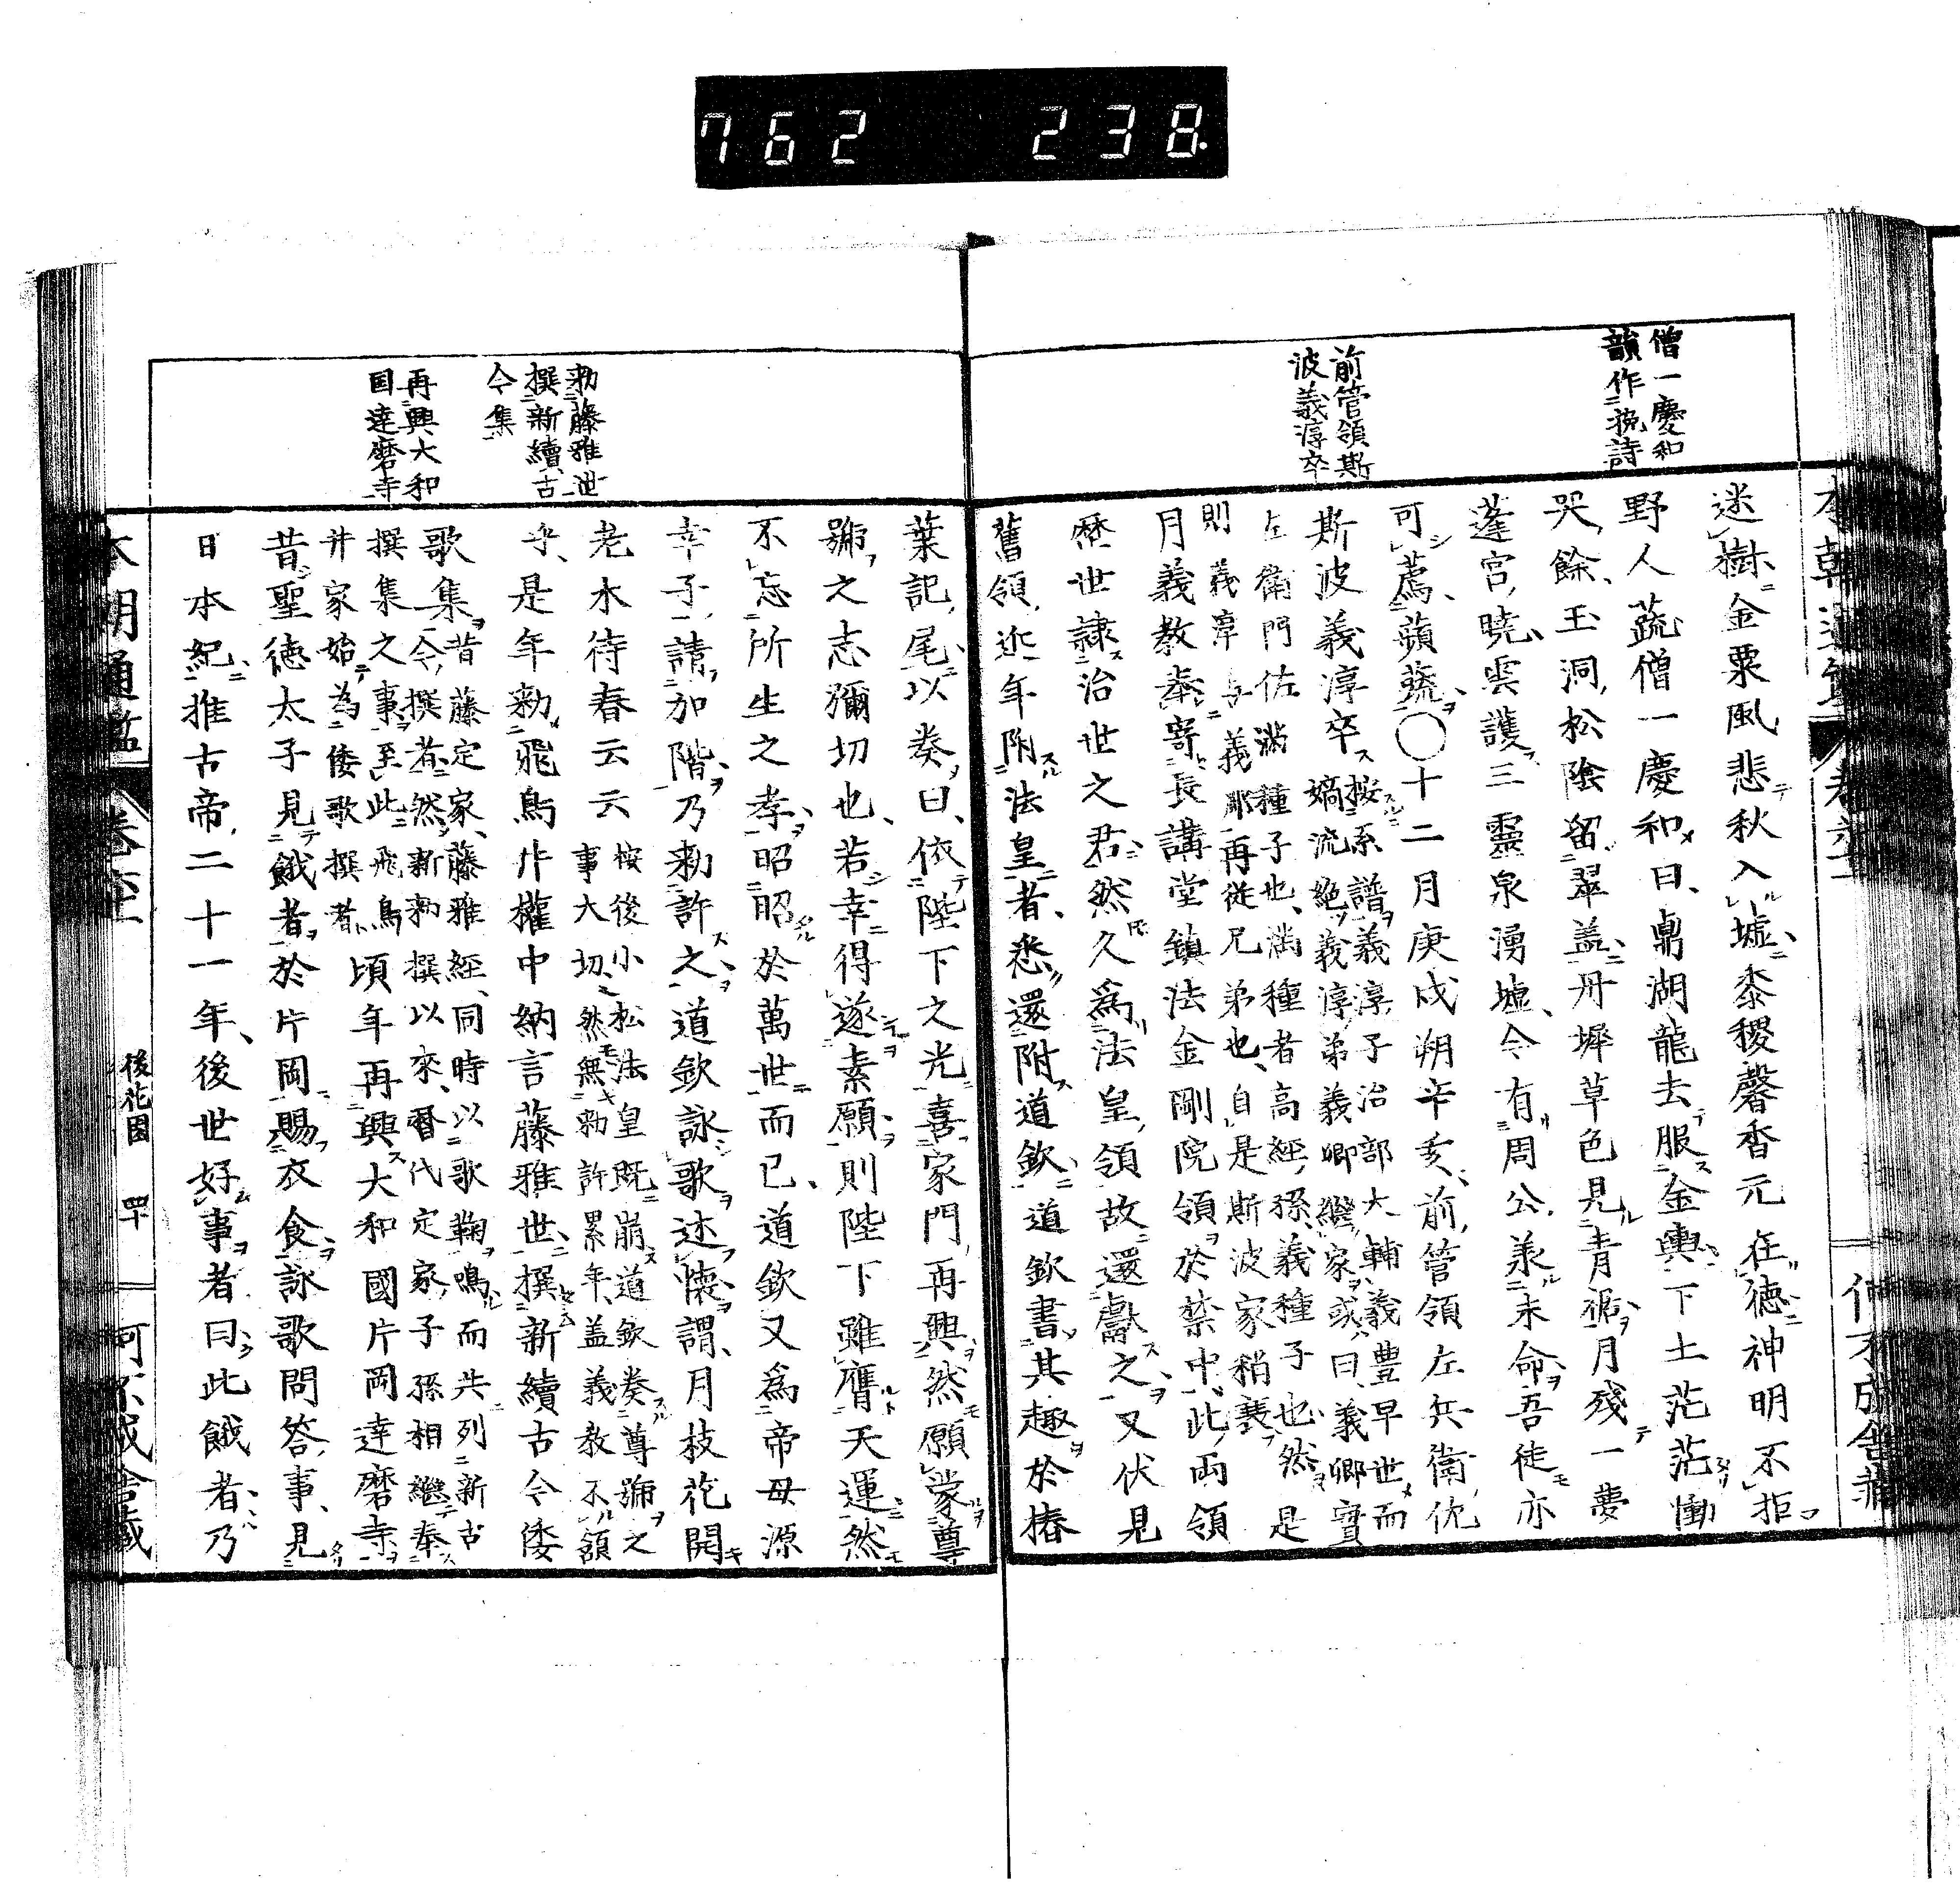 762 238.
僧一慶和
韻作挽詩
前管領斯
波義淳卒
迷樹金粟風悲秋入墟黍稷馨香元在徳神明不拒
野人蔬僧一慶和曰鼎湖龍去服金輿下土茫茫慟
哭餘玉洞松陰留翠盖丹墀草色見青裾月殘一夢
蓬宮曉雲護三靈泉湧墟令有周公羕末命吾徒亦
可薦蘋蔬〇十二月庚戌朔辛亥前管領左兵衛佐
斯波義淳卒
按系譜義淳子治部大輔義豊早世而
嫡流絶義淳弟義卿繼家或曰義卿實
左衛門佐滿種子也滿種者高經孫義種子也然是
則義淳与義郷再從兄弟也自是斯波家稍衰
月義教奉寄長講堂鎮法金剛院領於禁中此兩領
歴世隷治世之君然久爲法皇領故還獻之又伏見
舊領近年附法皇者悉還附道欽道欽書其趣於椿
勅藤雅世
撰新續古
今集
再興大和
国達磨寺
葉記尾以奏曰依陛下之光喜家門再興然願蒙尊
號之志彌切也若幸得遂素願則陛下雖膺天運然
不忘所生之孝昭昭於萬世而已道欽又爲帝母源
幸子請加階乃勅許之道欽詠歌述懐謂月枝花開
老木待春云云
按後小松法皇既崩道欽奏尊號之
事大切然無勅許累年盖義教不領
乎是年勅飛鳥井權中納言藤雅世撰新續古今倭
歌集
昔藤定家藤雅經同時以歌鞠鳴而共列新古
今撰者然新勅撰以來暦代定家子孫相繼奉
撰集之事至此飛鳥
井家始為倭歌撰者
頃年再興大和國片岡達磨寺
昔聖徳太子見餓者於片岡賜衣食詠歌問答事見
日本紀推古帝二十一年後世好事者曰此餓者乃
本朝通鑑
後花園
四十